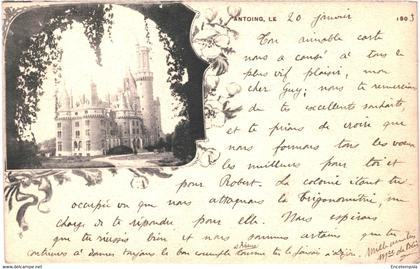 ANTOING, LE 20 janvier 1903
Ton aimable carte
nous a causé à tous le
plus vif plaisir, mon
cher Guy; nous te remercions
de tes excellents souhaits
et te prions de croire que
nous formons tous les vœux
les meilleurs pour toi et
pour Robert. La colonie étant très
occupée vu que nous attaquons la trigonométrie, me
charge de te répondre pour elle. Nous espérons
que tu réussis bien et nous sommes certains que tu
continues à donner toujours le bon exemple comme tu le faisais